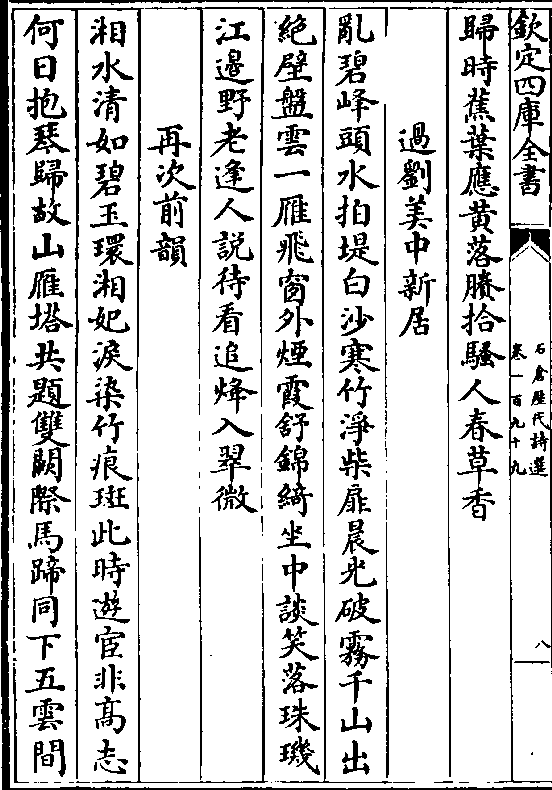 欽定四庫全書
石倉歷代詩選
卷一百九十九
八
歸時蕉葉應黄落賸拾騷人春草香
過劉美中新居
亂碧峰頭水拍堤白沙寒竹淨柴扉晨光破霧千山出
絶壁盤雲一雁飛窗外煙霞舒錦綺坐中談笑落珠璣
江邉野老逢人説待看追烽入翠微
再次前韻
湘水清如碧玉環湘妃淚染竹痕斑此時遊宦非髙志
何日抱琴歸故山雁塔共題雙闕際馬蹄同下五雲間